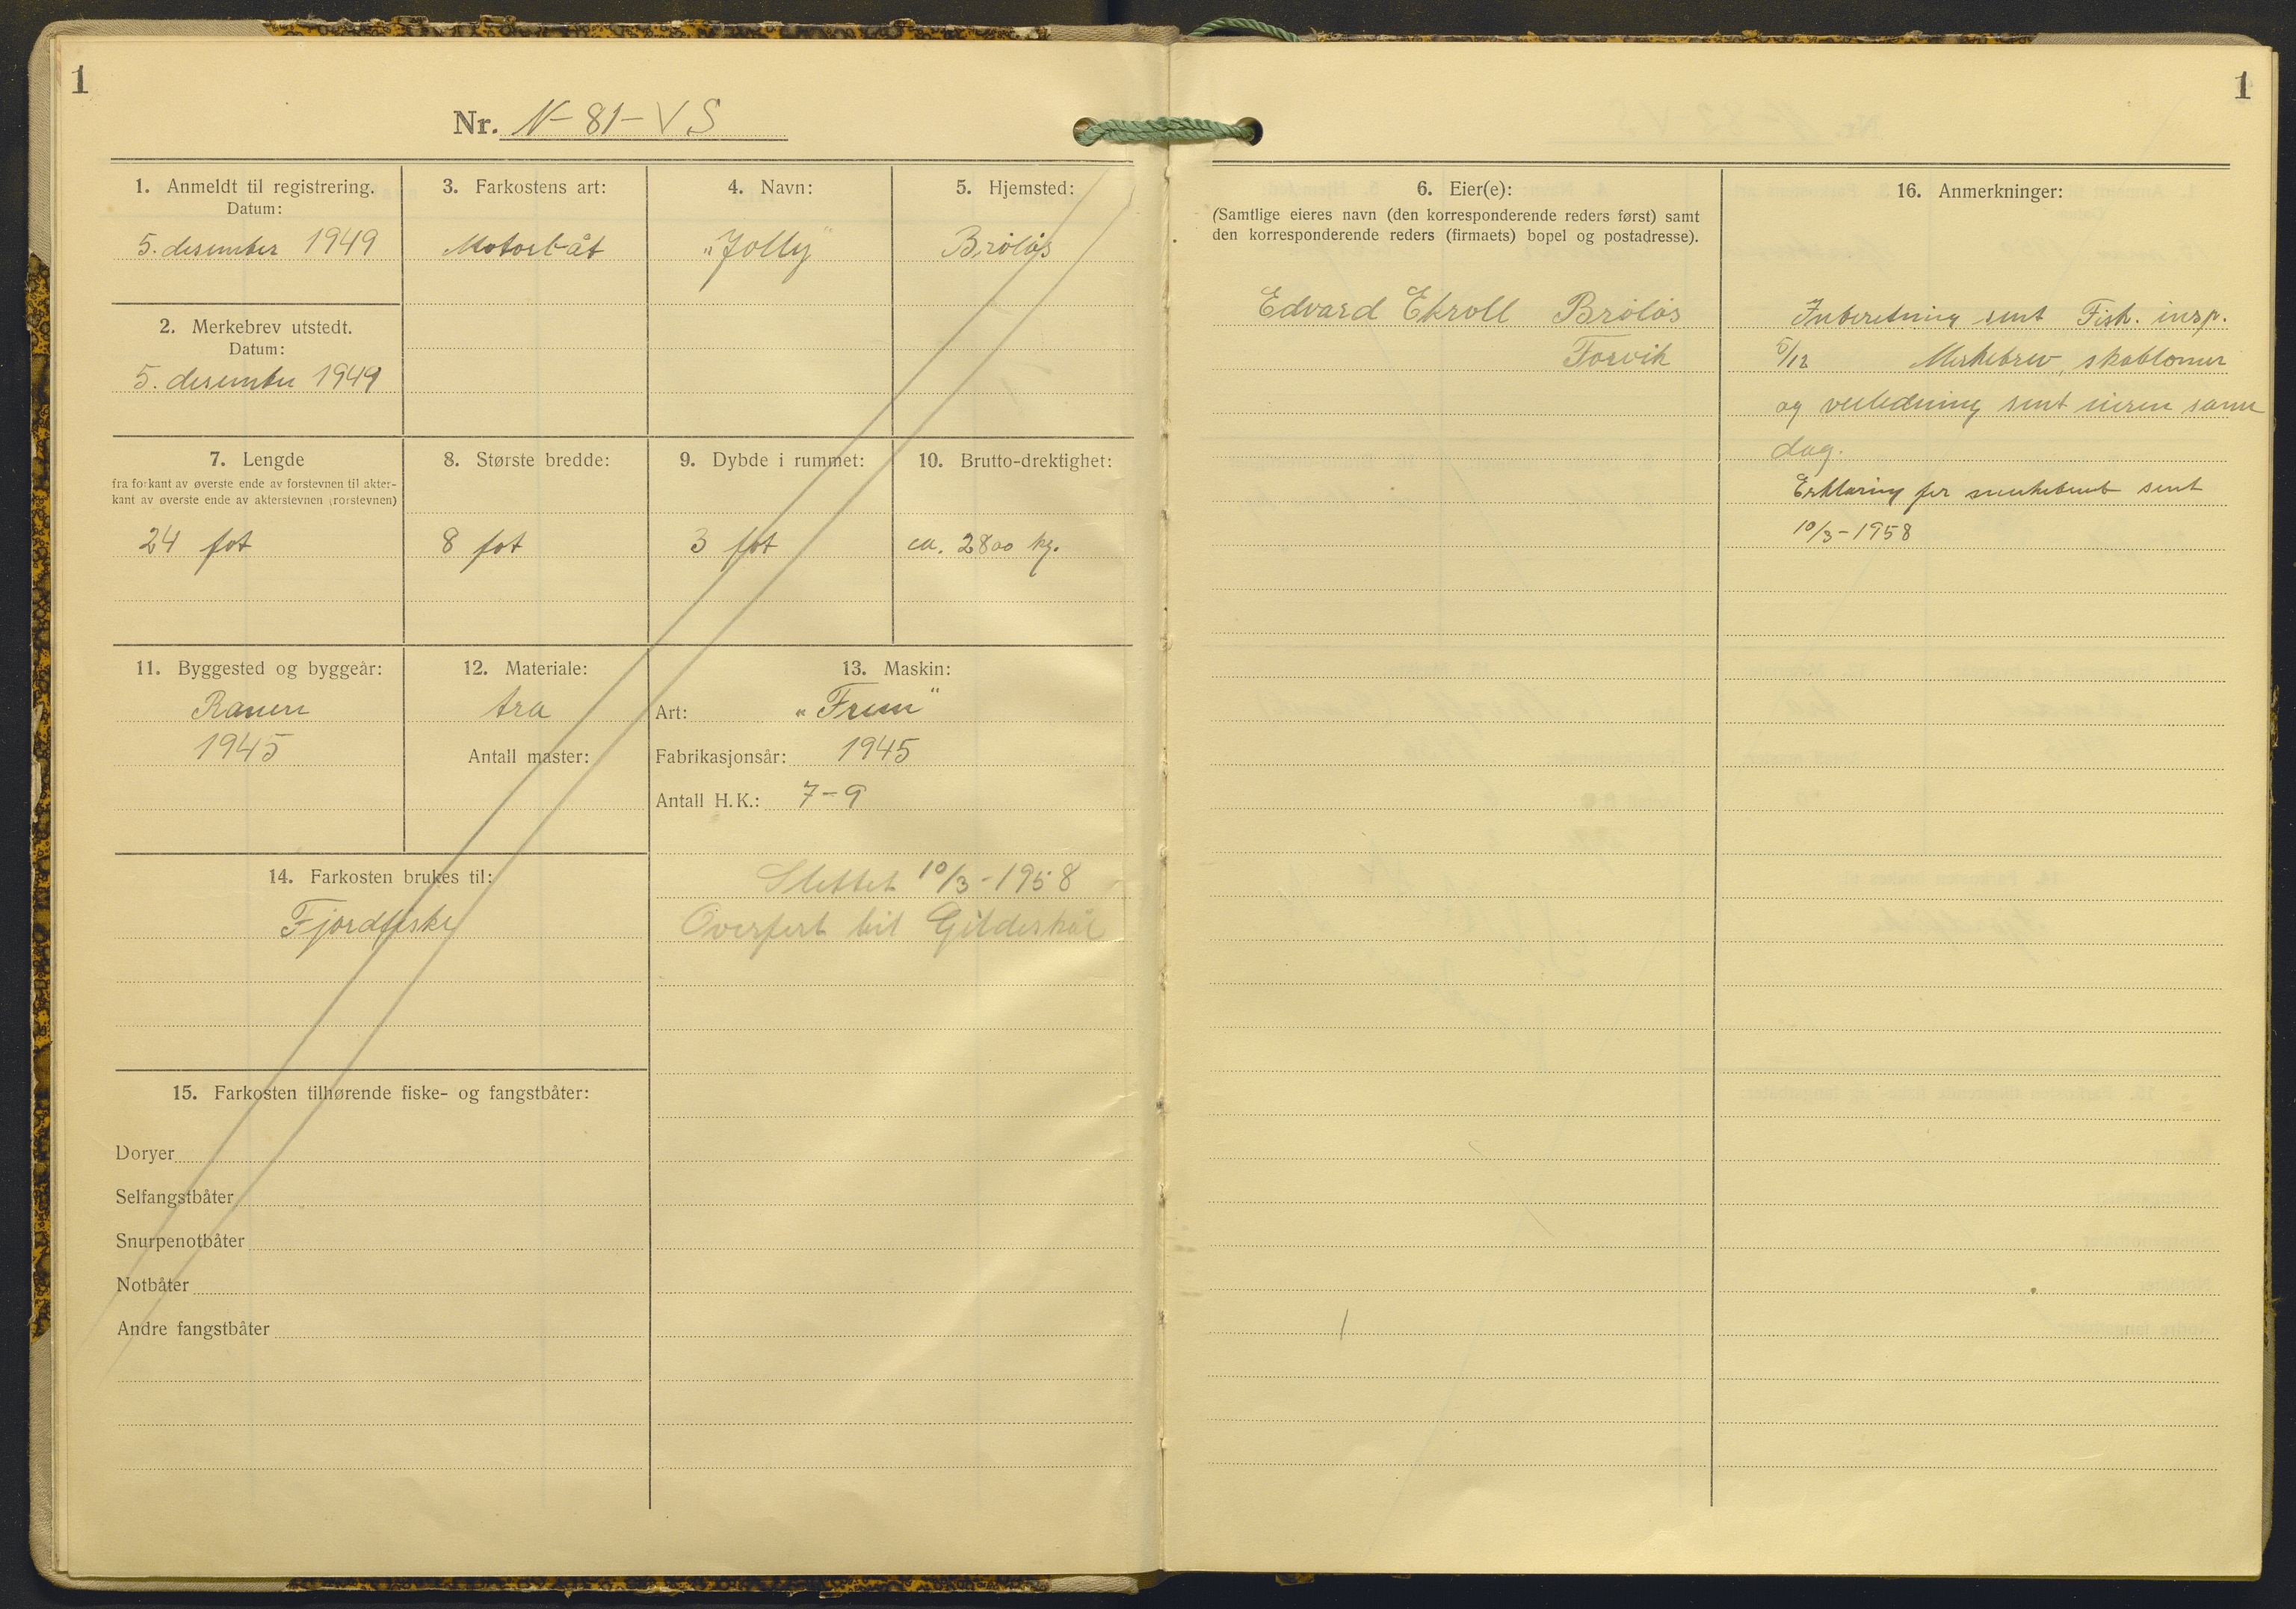 1
Nr. N-81-VS
1. Anmeldt til registrering.
Datum:
5. desember 1949
2. Merkebrev utstedt.
Datum:
5. desember 1949
3. Farkostens art:
Motorbåt
4. Navn:
"Jolly"
5. Hjemsted:
Brøløs
7. Lengde
fra forkant av øverste ende av forstevnen til akter-
kant av øverste ende av akterstevnen (rorstevnen)
24 fot
8. Største bredde:
8 fot
9. Dybde i rummet:
3 fot
10. Brutto-drektighet:
ca. 2800 kg.
11. Byggested og byggeår:
Ranen
1945
12. Materiale:
tre
Antall master:
13. Maskin:
Art: "Frem"
Fabrikasjonsår: 1945
Antall H.K.: 7-9
Slettet 10/3-1958
Overført til Gildeskål
14. Farkosten brukes til:
Fjordfiske
15. Farkosten tilhørende fiske- og fangstbåter:
Doryer
Selfangstbåter
Snurpenotbåter
Notbåter
Andre fangstbåter
1
6. Eier(e):
(Samtlige eieres navn (den korresponderende reders først) samt
den korresponderende reders (firmaets) bopel og postadresse).
Edvard Ekroll Brøløs
Forvik
16. Anmerkninger:
Inberetning sent Fisk. insp.
5/12 Merkebrev, skablomer
og veiledning sent eieren same
dag.
Erklæring for merkebrevet sent
10/3-1958